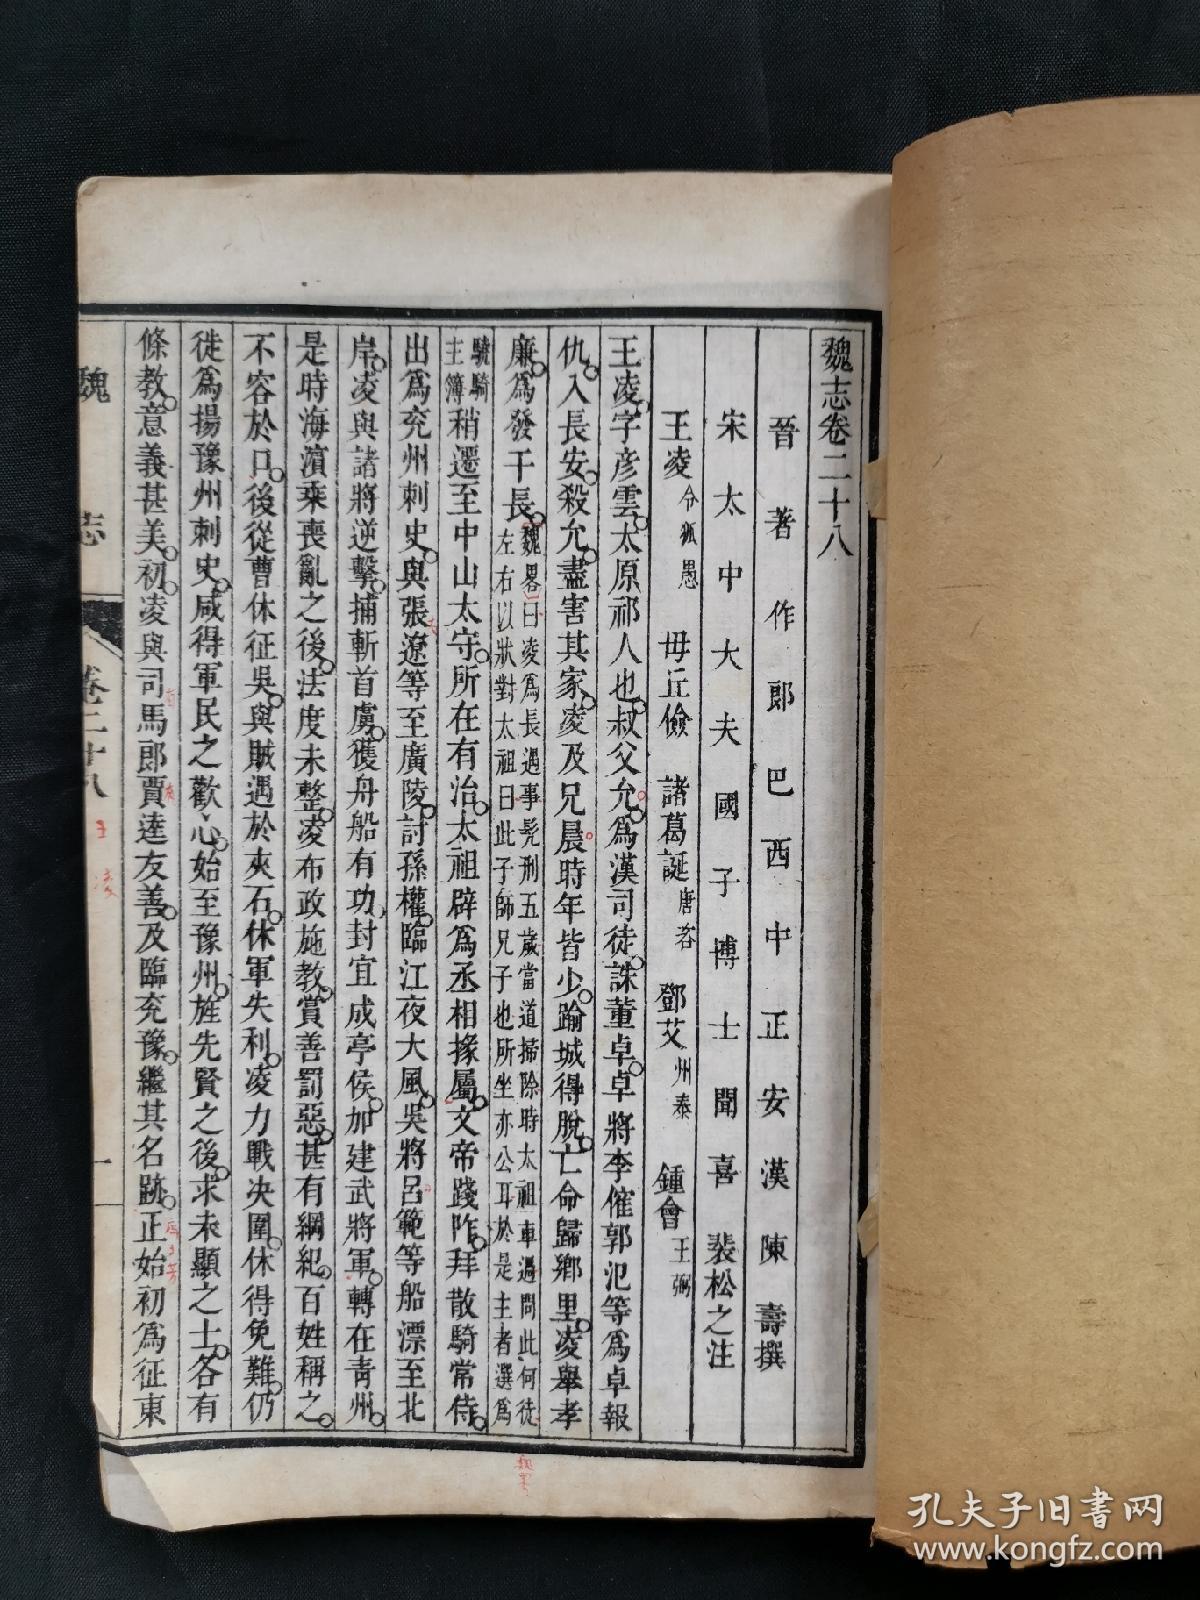 魏志卷二十八
晉著作郎巴西中正安漢陳壽撰
宋太中大夫國子博士聞喜裴松之注
王凌令狐愚 毋丘儉 諸葛誕唐咨 鄧艾州泰 鍾會王弼
王凌字彦雲太原祁人也叔父允爲漢司徒誅董卓卓將李傕郭汜等爲卓報
仇入長安殺允盡害其家凌及兄晨時年皆少踰城得脫亡命歸鄉里凌舉孝
廉爲發干長魏略曰凌爲長遇事髠刑五歲當道掃除時太祖車過問此何徒
左右以狀對太祖曰此子師兄子也所坐亦公耳於是主者選爲
驍騎
主簿稍遷至中山太守所在有治太祖辟爲丞相掾屬文帝踐阼拜散騎常侍
出爲兖州刺史與張遼等至廣陵討孫權臨江夜大風吳將呂範等船漂至北
岸凌與諸將逆擊捕斬首虜獲舟船有功封宜成亭侯加建武將軍轉在青州
是時海濵乘喪亂之後法度未整凌布政施教賞善罰惡甚有綱紀百姓稱之
不容於口後從曹休征吳與賊遇於夾石休軍失利凌力戰決圍休得免難仍
徙爲揚豫州刺史咸得軍民之歡心始至豫州旌先賢之後求未顯之士各有
條教意義甚美初凌與司馬郎賈逵友善及臨兖豫繼其名跡正始初爲征東
魏志 卷二十八 王凌 一
魏畧
孔夫子旧書网
www.kongfz.com